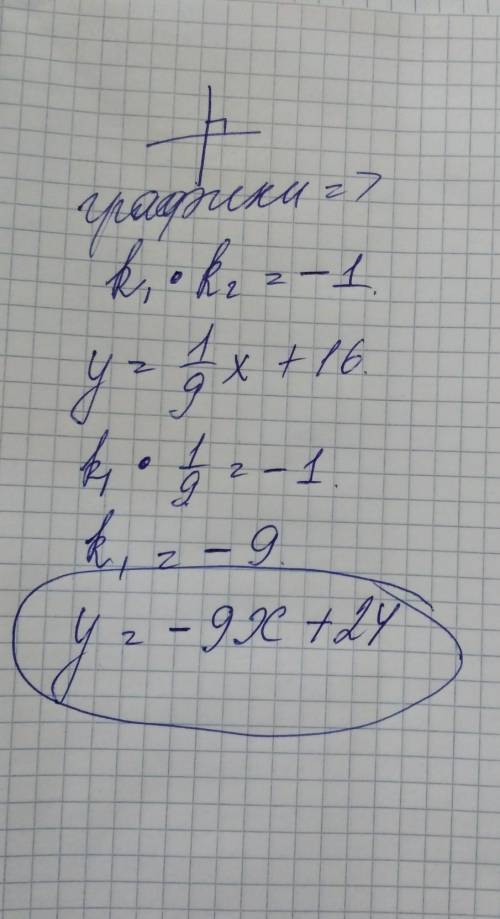 графики =>
k₁ • k₂ = -1.
y = 1/9 x + 16.
k₁ • 1/9 = -1.
k₁ = -9.
y = -9x + 24